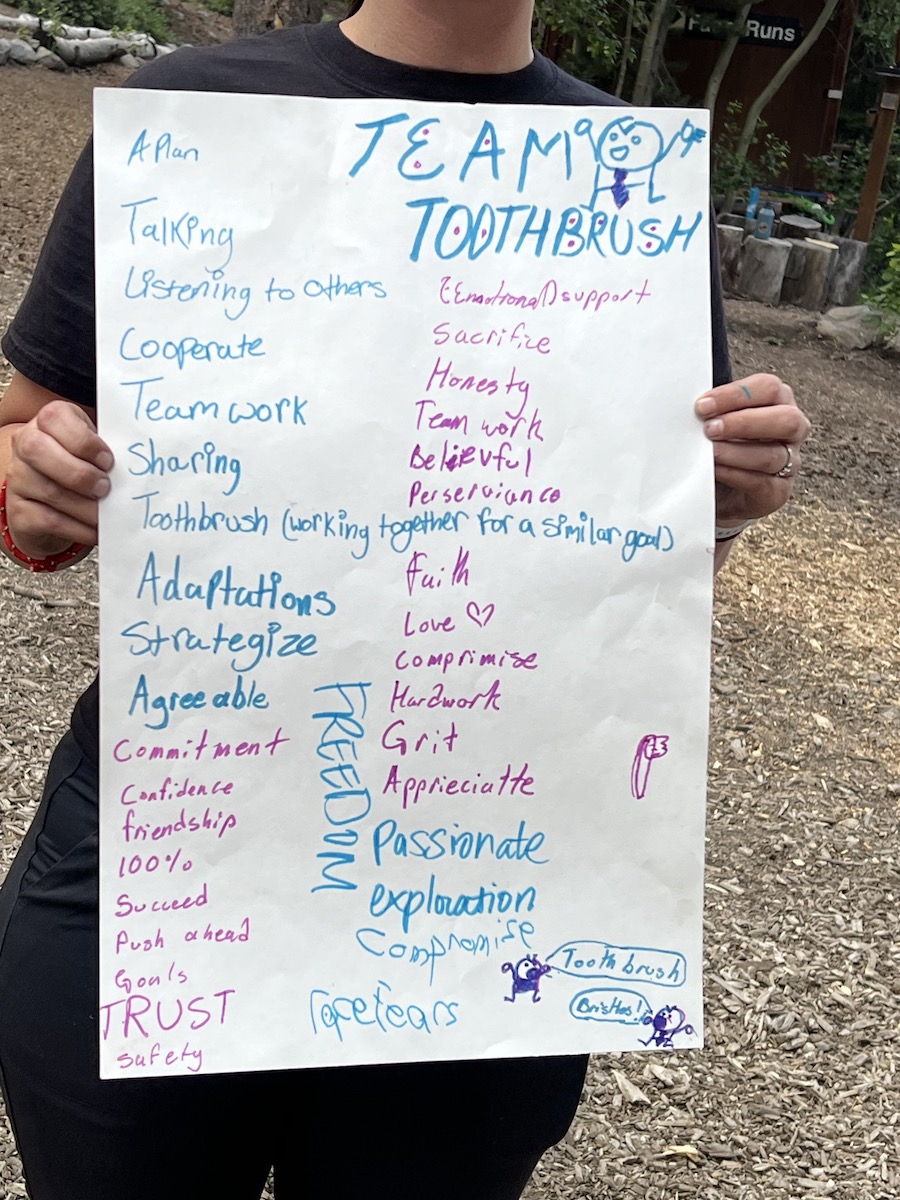 Runs
TEAM
TOOTHBRUSH
A Plan
Talking
Listening to others
Cooperate
Teamwork
Sharing
Toothbrush (working together for a similar goal)
Adaptations
Strategize
Agreeable
Commitment
Confidence
friendship
100%
Succeed
Push ahead
Goals
TRUST
safety
FREEDOM
(Emotional) support
Sacrifice
Honesty
Team work
Believful
Perserviance
Faith
Love
Comprimise
Hardwork
Grit
Apprieciatte
Passionate
exploration
Compromise
Toothbrush
Bristles!